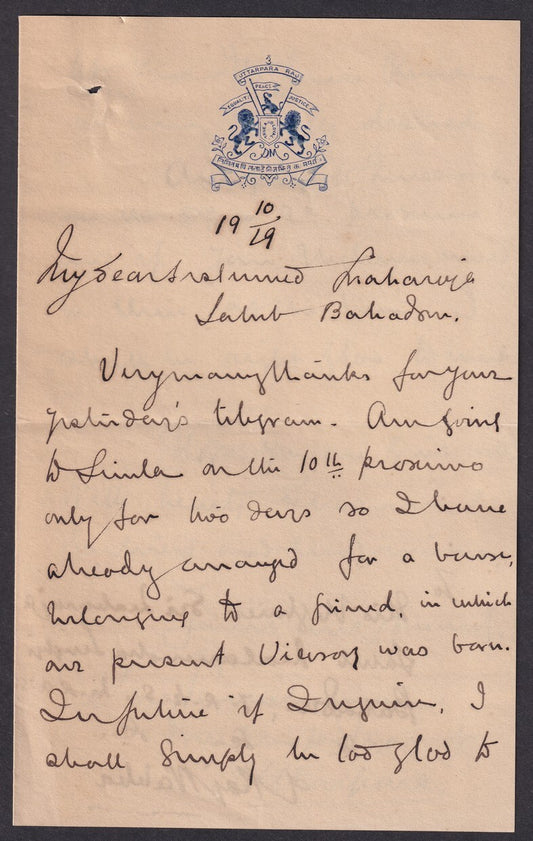 UTTARPARA RAJ
PEACE
EQUALITY JUSTICE
DM
19 10/29
My dear & esteemed Maharaja
Sahib Bahadur.
Very many thanks for your
yesterday's telegram. Am going
to Simla on the 10th proximo
only for two days so I have
already arranged for a house,
belonging to a friend, in which
our present Viceroy was born.
In future if I require, I
shall simply be too glad to